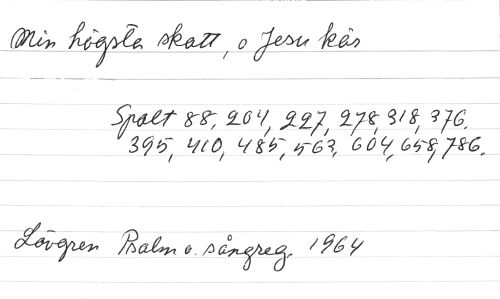 Min högsta skatt, o Jesu kär
Spalt 88, 204, 227, 278, 318, 376.
395, 410, 485, 563, 604, 658, 786.
Lövgren Psalm o. sångreg. 1964